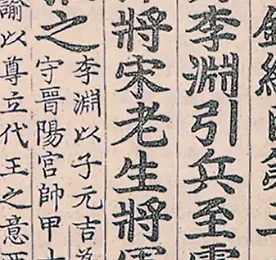 李淵引兵至
將宋老生將軍
之
李淵以子元吉為
守晉陽宮帥甲士
諭以尊立代王之意西